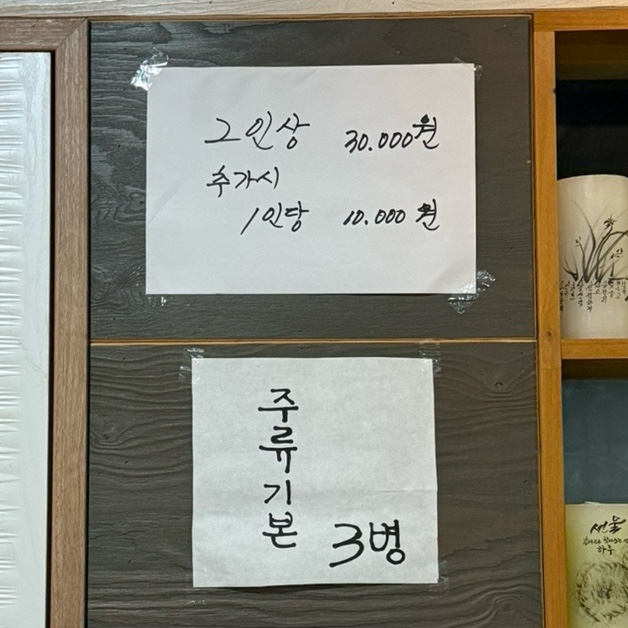 2인상 30.000원
추가시
1인당 10.000 원
주류기본
3병
하루